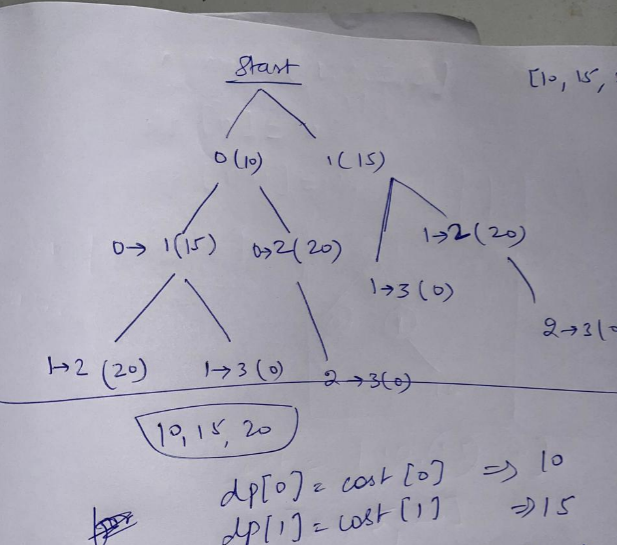 Start
[10, 15,
0(10) 1(15)
0→ 1(15) 0→2(20) 1→2(20)
1→3(0)
2→3(
1→2 (20) 1→3(0) 2→3(0)
10, 15, 20
dp[0] = cost[0] => 10
dp[1] = cost[1] => 15